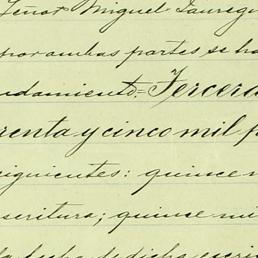 Señor Miguel Jauregu
por ambas partes se ha
udamiento = Tercera
renta y cinco mil p
siguientes: quince m
scritura; quince mi
la fecha de dicha escri